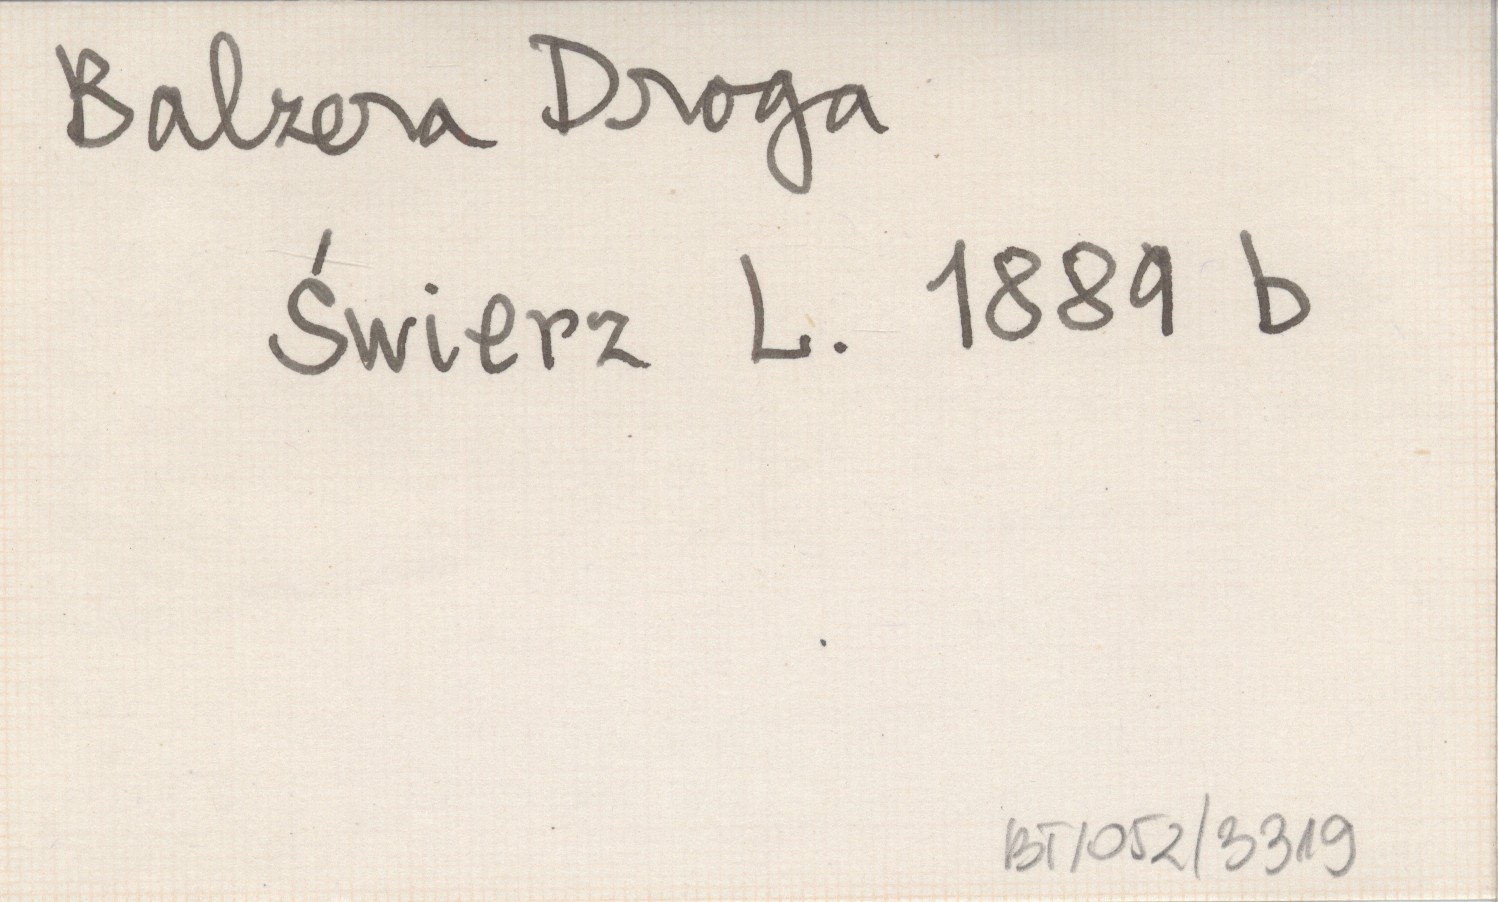 Balzera Droga
Świerz L. 1889 b
BT/052/3319